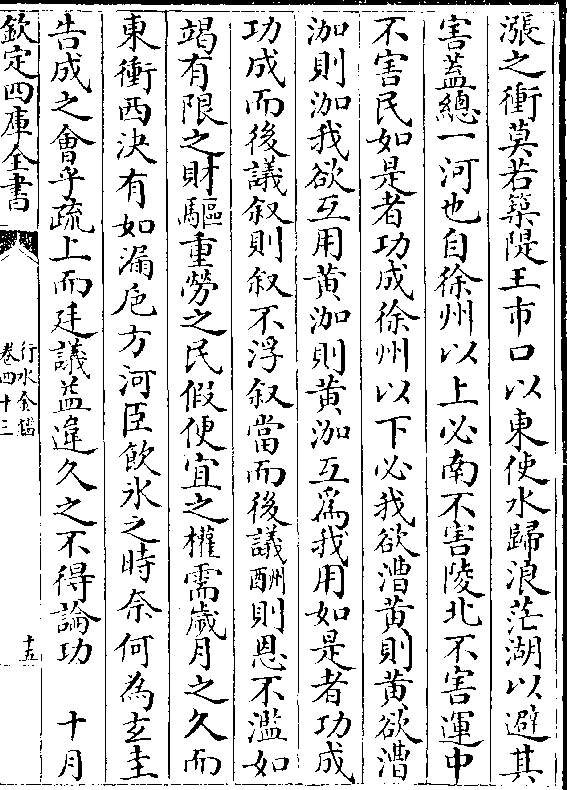 漲之衝莫若築隄王市口以東使水歸浪茫湖以避其
害蓋總一河也自徐州以上必南不害陵北不害運中
不害民如是者功成徐州以下必我欲漕黄則黄欲漕
泇則泇我欲互用黄泇則黄泇互爲我用如是者功成
功成而後議叙則叙不浮叙當而後議酬則恩不濫如
竭有限之財驅重勞之民假便宜之權需歲月之久而
東衝西決有如漏卮方河臣飲氷之時奈何為玄圭
告成之會乎疏上而廷議益違久之不得論功　十月
欽定四庫全書
行水金鑑
卷四十三
十五